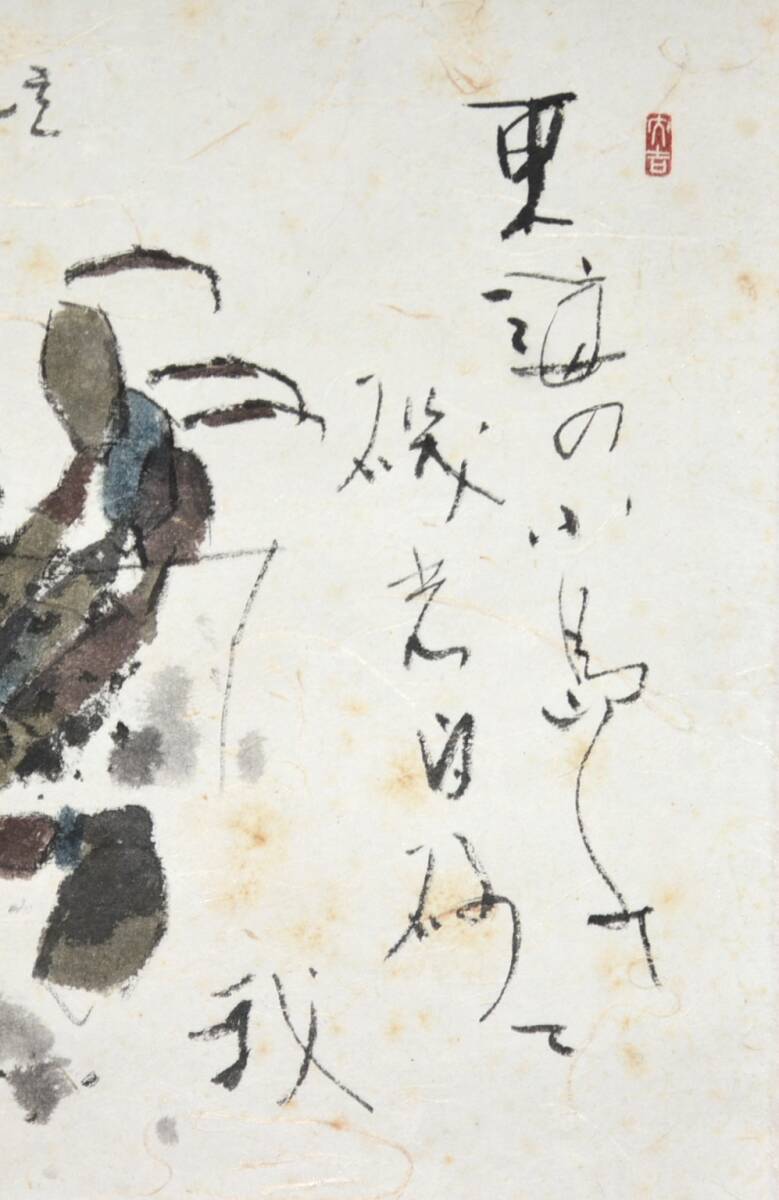 東海の小島
磯の白砂
我